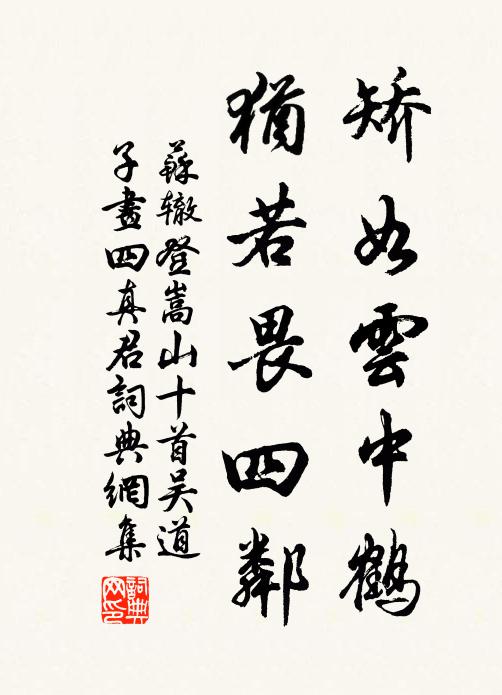 矫如雲中鶴
猶若畏四鄰
蘇辙登嵩山十首吴道
子畫四真君詞典網集
詞典网印